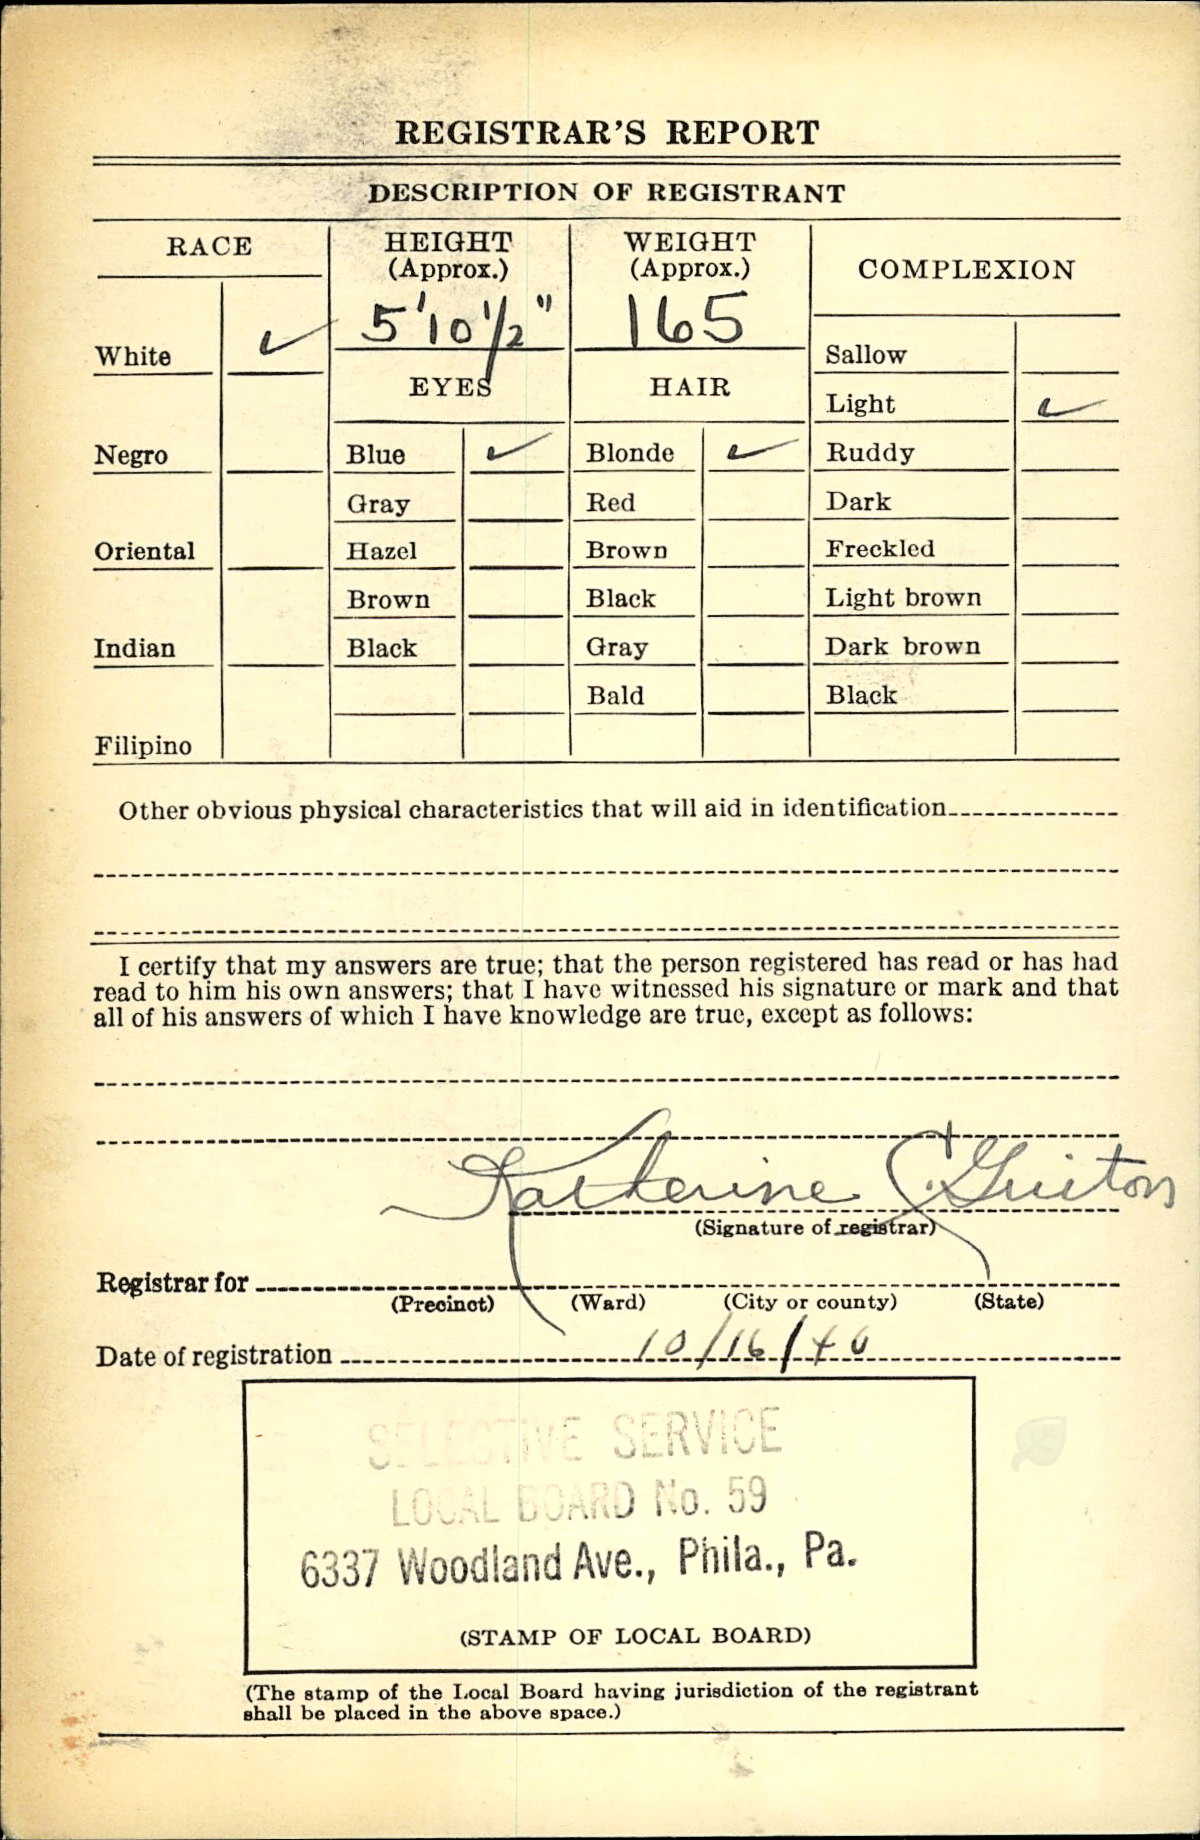 REGISTRAR'S REPORT
DESCRIPTION OF REGISTRANT
RACE
HEIGHT
(Approx.)
WEIGHT
(Approx.)
COMPLEXION
5' 10 1/2"
165
White ✓
EYES
HAIR
Sallow
Light ✓
Negro
Blue ✓
Blonde ✓
Ruddy
Gray
Red
Dark
Oriental
Hazel
Brown
Freckled
Brown
Black
Light brown
Indian
Black
Gray
Dark brown
Bald
Black
Filipino
Other obvious physical characteristics that will aid in identification
I certify that my answers are true; that the person registered has read or has had
read to him his own answers; that I have witnessed his signature or mark and that
all of his answers of which I have knowledge are true, except as follows:
Katherine C. Guiton
(Signature of registrar)
Registrar for
(Precinct) (Ward) (City or county) (State)
Date of registration 10/16/40
SELECTIVE SERVICE
LOCAL BOARD No. 59
6337 Woodland Ave., Phila., Pa.
(STAMP OF LOCAL BOARD)
(The stamp of the Local Board having jurisdiction of the registrant
shall be placed in the above space.)